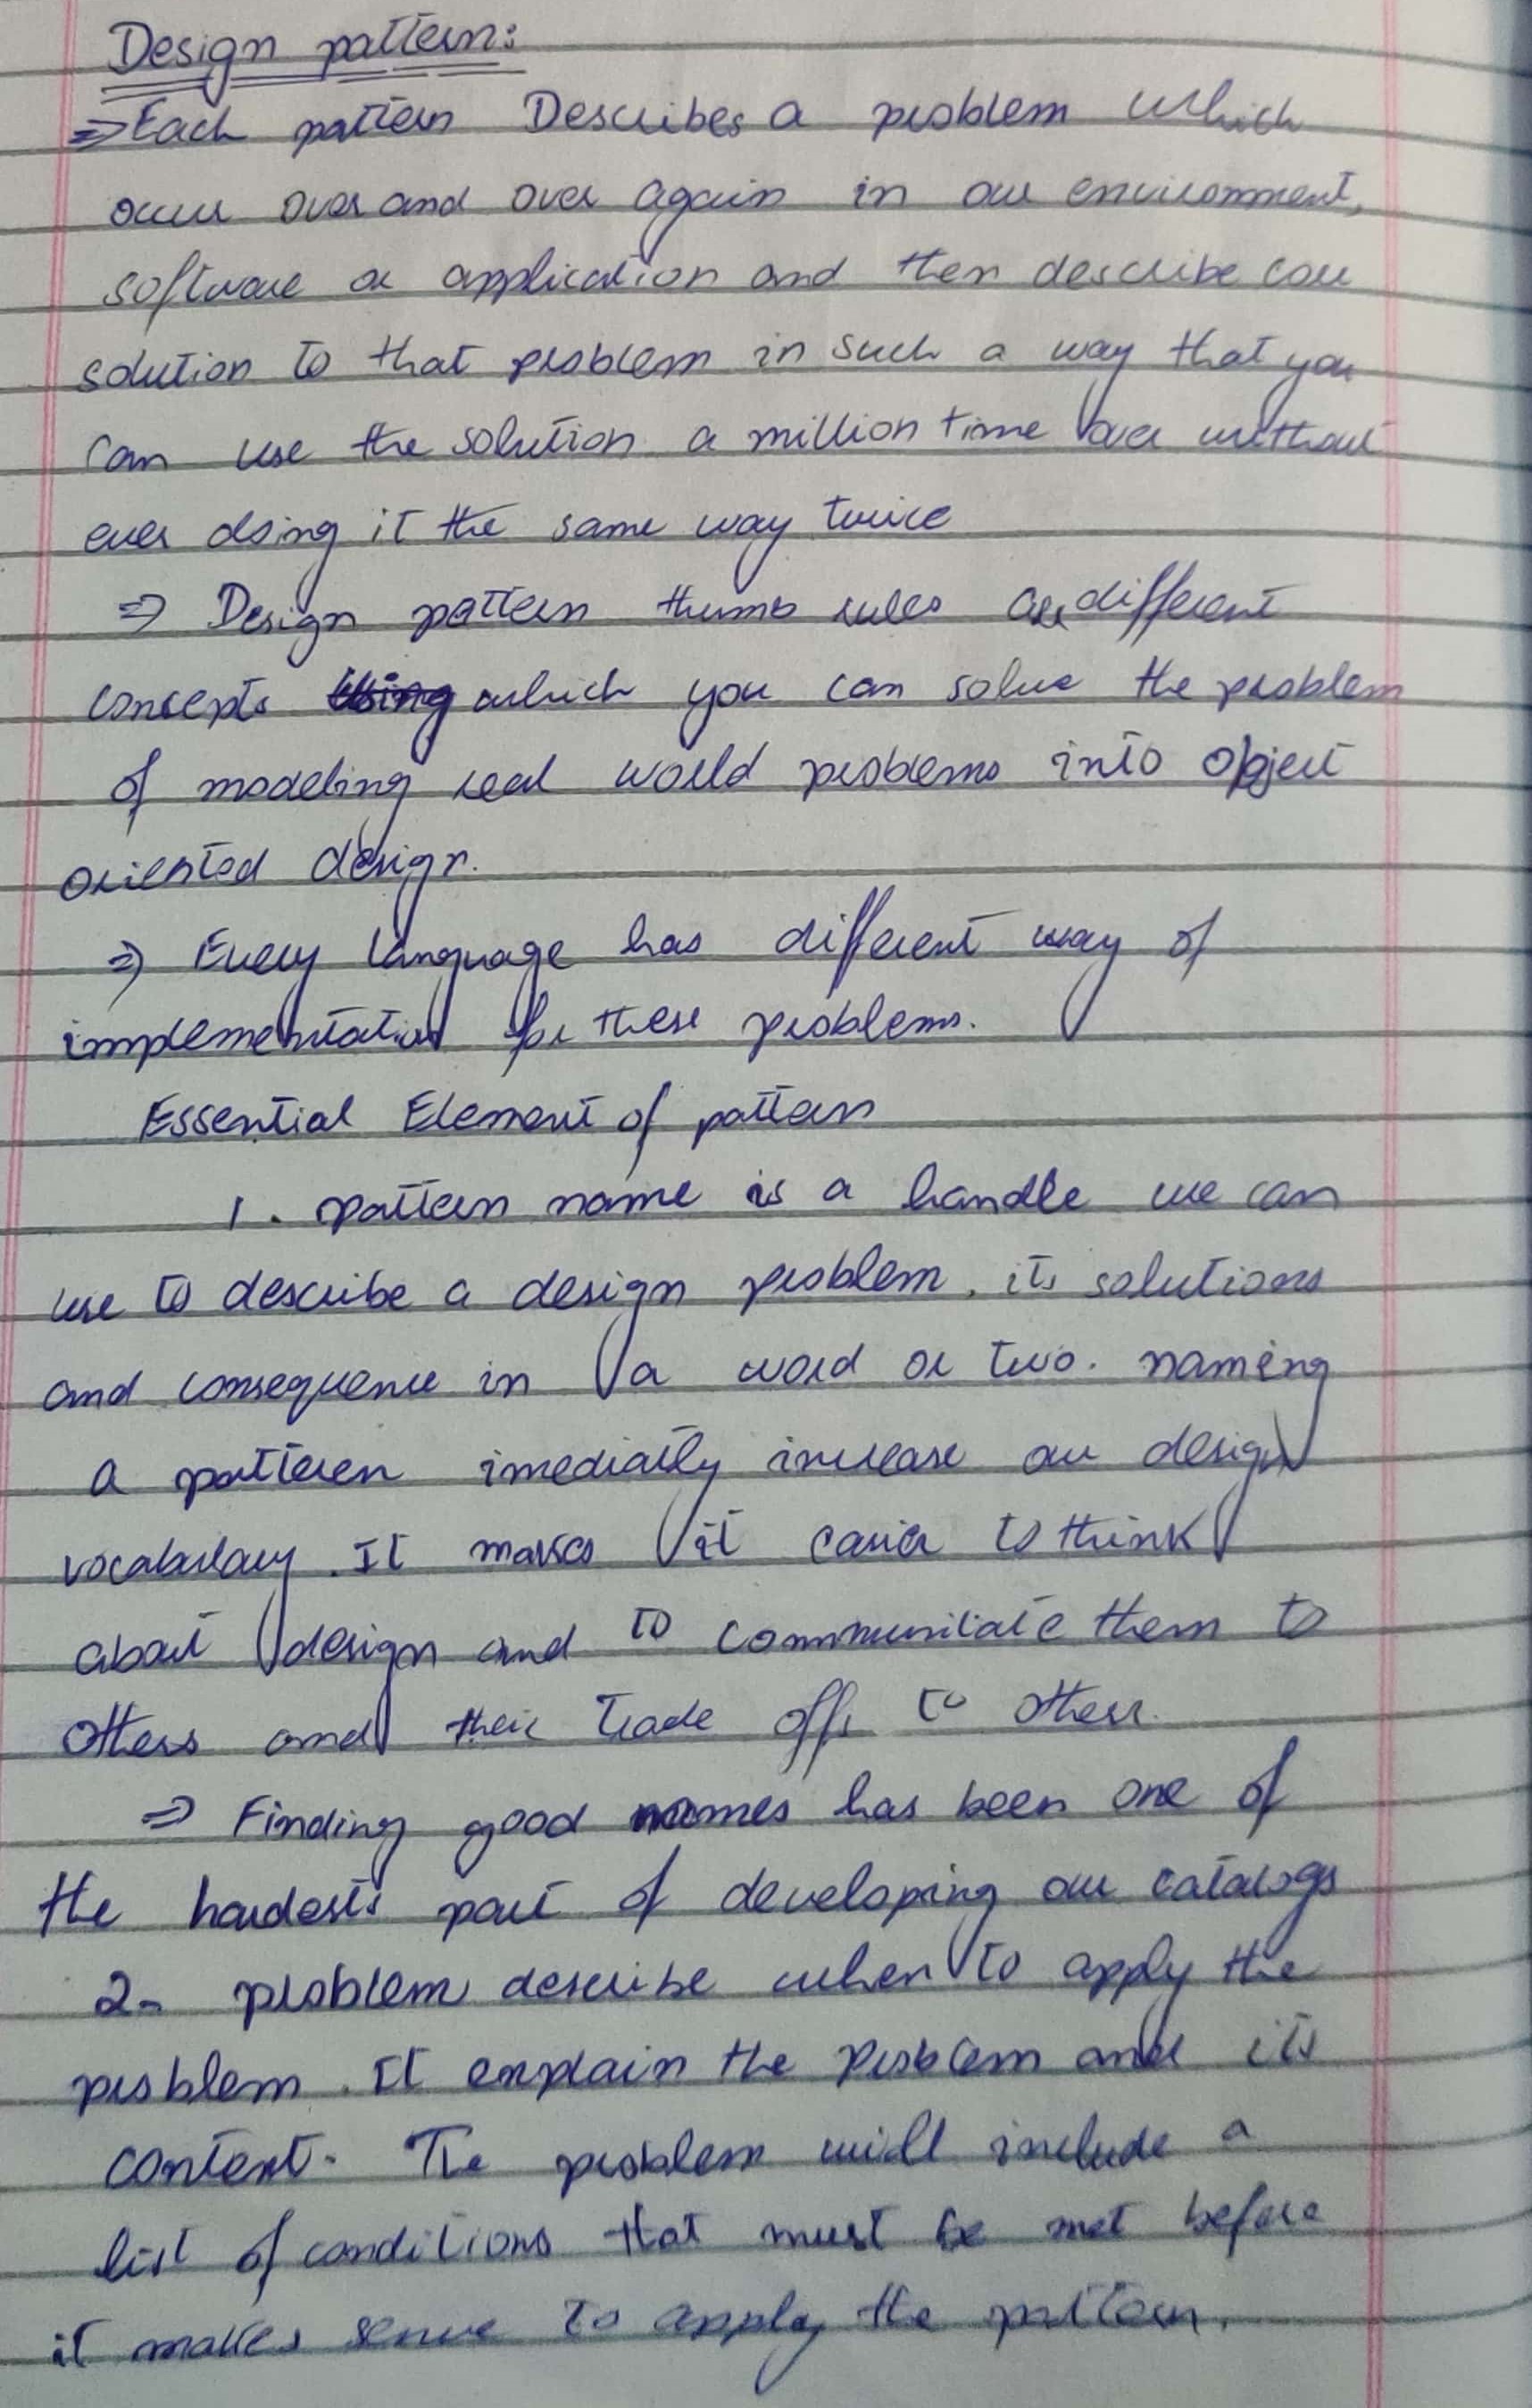 Design pattern:
⇒ Each pattern Describes a problem which
occur over and over again in our environment,
software or application and then describe core
solution to that problem in such a way that you
can use the solution a million time over without
ever doing it the same way twice
⇒ Design pattern thumb rules are different
concepts which you can solve the problem
of modeling real world problems into object
oriented design.
⇒ Every language has different way of
implementation for these problems.
Essential Element of pattern
1. pattern name is a handle we can
use to describe a design problem, its solutions
and consequence in a word or two. naming
a patteren imediatly increase our design
vocabulary. It makes it easier to think
about design and to communitate them to
others and their trade offs to others.
⇒ Finding good names has been one of
the hardests part of developing our catalogs
2- problem describe when to apply the
problem. It explain the problem and its
context. The problem will include a
list of conditions that must be met before
it makes sense to apply the pattern.